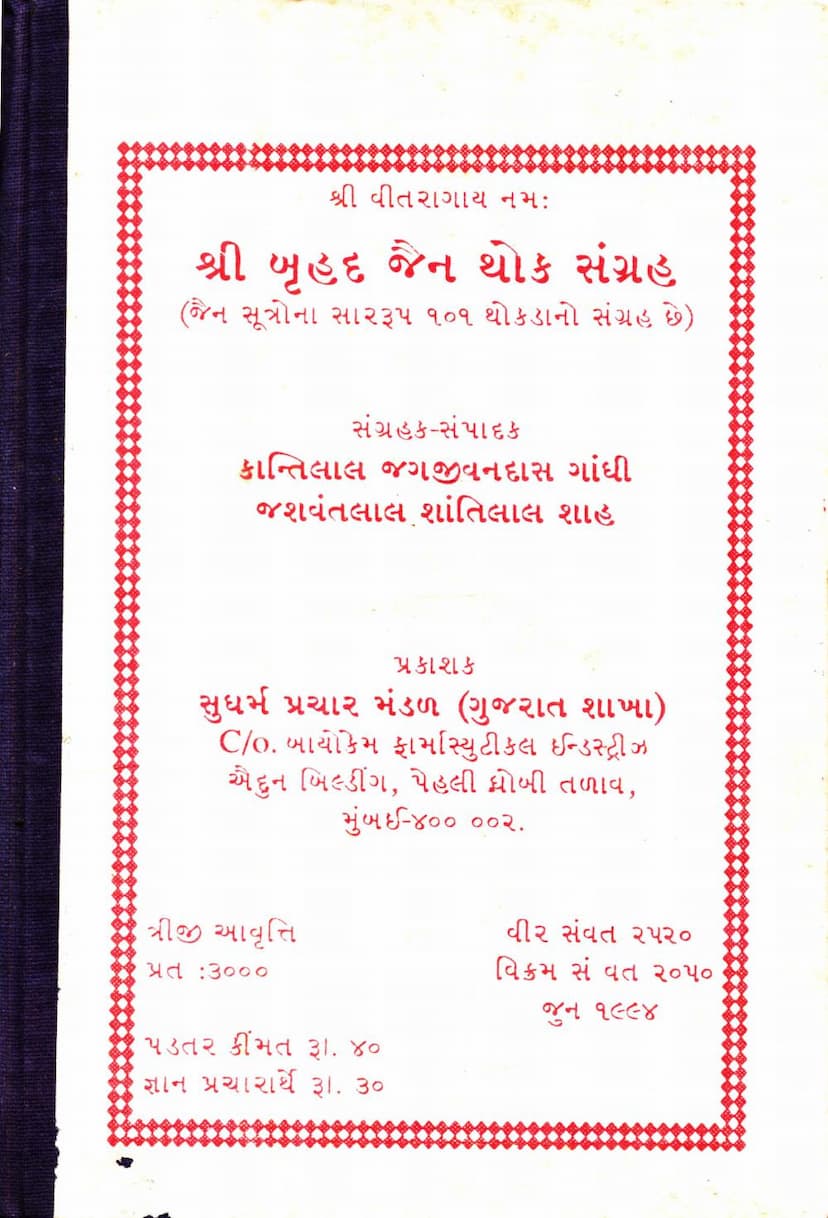 શ્રી વીતરાગાય નમ:
શ્રી બૃહદ જૈન થોક સંગ્રહ
(જૈન સૂત્રોના સારરૂપ ૧૦૧ થોકડાનો સંગ્રહ છે)
સંગ્રહક-સંપાદક
કાન્તિલાલ જગજીવનદાસ ગાંધી
જશવંતલાલ શાંતિલાલ શાહ
પ્રકાશક
સુધર્મ પ્રચાર મંડળ (ગુજરાત શાખા)
C/o. બાયોકેમ ફાર્માસ્યુટીકલ ઈન્ડસ્ટ્રીઝ
ઐદુન બિલ્ડીંગ, પેહલી ધોબી તળાવ,
મુંબઈ-૪૦૦ ૦૦૨.
ત્રીજી આવૃત્તિ
પ્રત :૩૦૦૦
વીર સંવત ૨૫૨૦
વિક્રમ સં વત ૨૦૫૦
જુન ૧૯૯૪
પડતર કીંમત રૂા. ૪૦
જ્ઞાન પ્રચારાર્થે રૂા. ૩૦